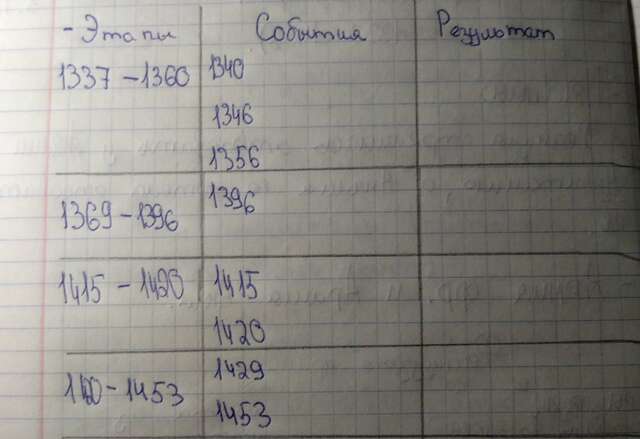 - Этапы События Результат
1337 - 1360 1340
1346
1356
1369 - 1396 1396
1415 - 1420 1415
1420
1420 - 1453 1429
1453